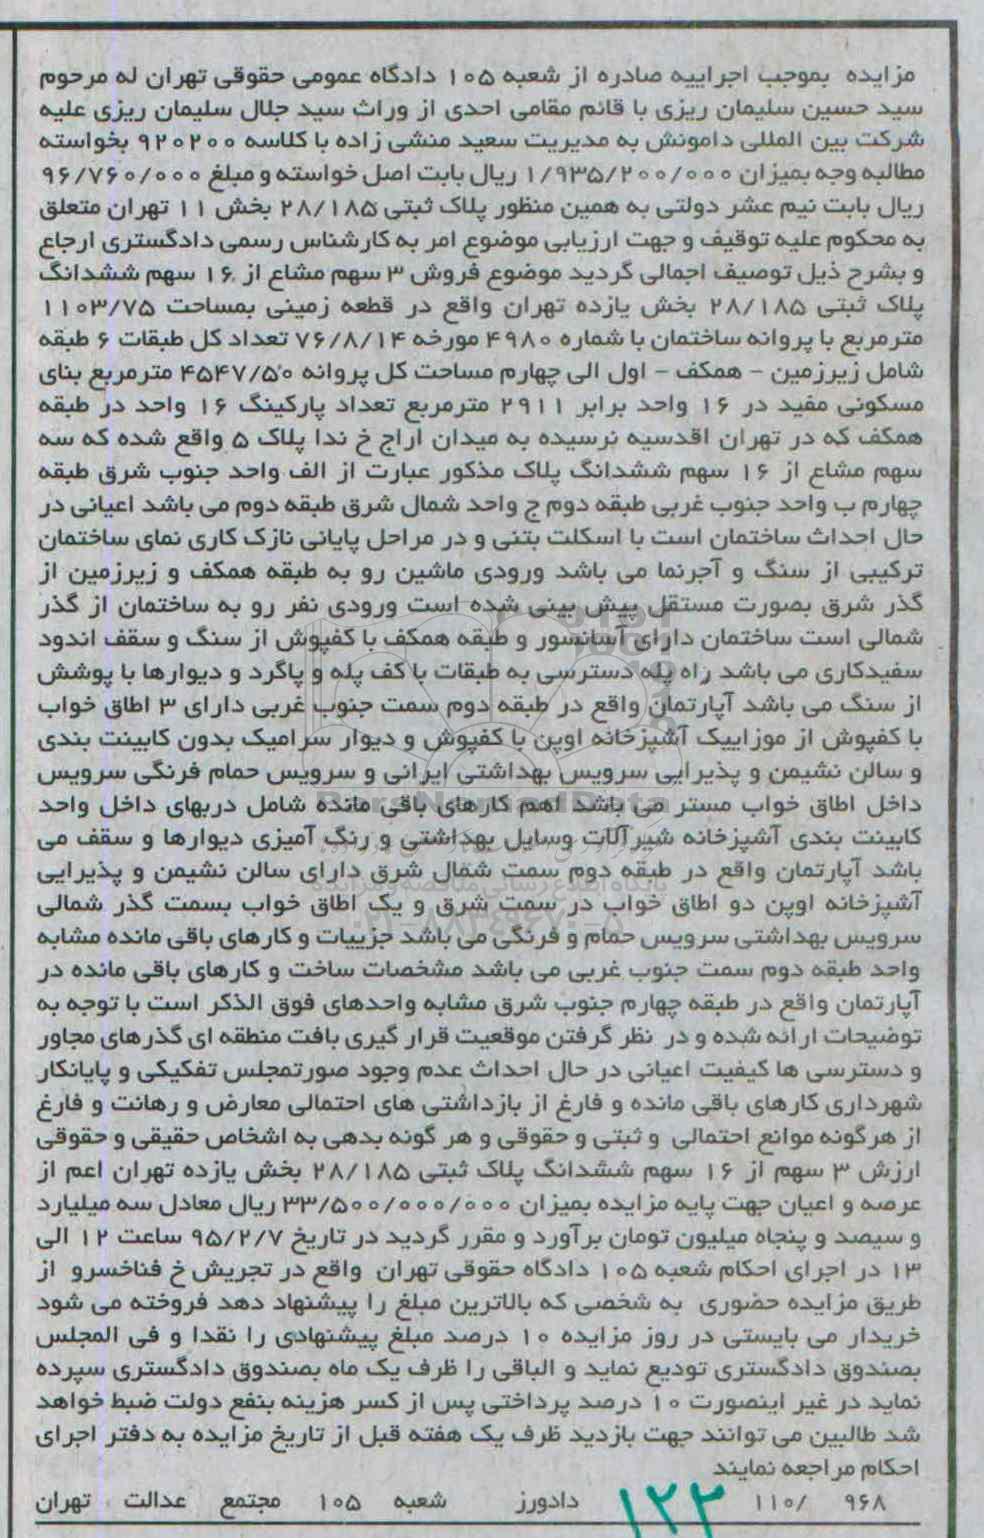 مزایده بموجب اجراییه صادره از شعبه ۱۰۵ دادگاه عمومی حقوقی تهران له مرحوم
سید حسین سلیمان ریزی با قائم مقامی احدی از وراث سید جلال سلیمان ریزی علیه
شرکت بین المللی دامونش به مدیریت سعید منشی زاده با کلاسه ۹۲۰۲۰۰ بخواسته
مطالبه وجه بمیزان ۱/۹۳۵/۲۰۰/۰۰۰ ریال بابت اصل خواسته و مبلغ ۹۶/۷۶۰/۰۰۰
ریال بابت نیم عشر دولتی به همین منظور پلاک ثبتی ۲۸/۱۸۵ بخش ۱۱ تهران متعلق
به محکوم علیه توقیف و جهت ارزیابی موضوع امر به کارشناس رسمی دادگستری ارجاع
و بشرح ذیل توصیف اجمالی گردید موضوع فروش ۳ سهم مشاع از ۱۶ سهم ششدانگ
پلاک ثبتی ۲۸/۱۸۵ بخش یازده تهران واقع در قطعه زمینی بمساحت ۱۱۰۳/۷۵
مترمربع با پروانه ساختمان با شماره ۴۹۸۰ مورخه ۷۶/۸/۱۴ تعداد کل طبقات ۶ طبقه
شامل زیرزمین - همکف - اول الی چهارم مساحت کل پروانه ۴۵۴۷/۵۰ مترمربع بنای
مسکونی مفید در ۱۶ واحد برابر ۲۹۱۱ مترمربع تعداد پارکینگ ۱۶ واحد در طبقه
همکف که در تهران اقدسیه نرسیده به میدان اراج خ ندا پلاک ۵ واقع شده که سه
سهم مشاع از ۱۶ سهم ششدانگ پلاک مذکور عبارت از الف واحد جنوب شرق طبقه
چهارم ب واحد جنوب غربی طبقه دوم ج واحد شمال شرق طبقه دوم می باشد اعیانی در
حال احداث ساختمان است با اسکلت بتنی و در مراحل پایانی نازک کاری نمای ساختمان
ترکیبی از سنگ و آجرنما می باشد ورودی ماشین رو به طبقه همکف و زیرزمین از
گذر شرق بصورت مستقل پیش بینی شده است ورودی نفر رو به ساختمان از گذر
شمالی است ساختمان دارای آسانسور و طبقه همکف با کفپوش از سنگ و سقف اندود
سفیدکاری می باشد راه پله دسترسی به طبقات با کف پله و پاگرد و دیوارها با پوشش
از سنگ می باشد آپارتمان واقع در طبقه دوم سمت جنوب غربی دارای ۳ اطاق خواب
با کفپوش از موزاییک آشپزخانه اوپن با کفپوش و دیوار سرامیک بدون کابینت بندی
و سالن نشیمن و پذیرایی سرویس بهداشتی ایرانی و سرویس حمام فرنگی سرویس
داخل اطاق خواب مستر می باشد اهم کارهای باقی مانده شامل دربهای داخل واحد
کابینت بندی آشپزخانه شیرآلات وسایل بهداشتی و رنگ آمیزی دیوارها و سقف می
باشد آپارتمان واقع در طبقه دوم سمت شمال شرق دارای سالن نشیمن و پذیرایی
آشپزخانه اوپن دو اطاق خواب در سمت شرق و یک اطاق خواب بسمت گذر شمالی
سرویس بهداشتی سرویس حمام و فرنگی می باشد جزییات و کارهای باقی مانده مشابه
واحد طبقه دوم سمت جنوب غربی می باشد مشخصات ساخت و کارهای باقی مانده در
آپارتمان واقع در طبقه چهارم جنوب شرق مشابه واحدهای فوق الذکر است با توجه به
توضیحات ارائه شده و در نظر گرفتن موقعیت قرار گیری بافت منطقه ای گذرهای مجاور
و دسترسی ها کیفیت اعیانی در حال احداث عدم وجود صورتمجلس تفکیکی و پایانکار
شهرداری کارهای باقی مانده و فارغ از بازداشتی های احتمالی معارض و رهانت و فارغ
از هرگونه موانع احتمالی و ثبتی و حقوقی و هر گونه بدهی به اشخاص حقیقی و حقوقی
ارزش ۳ سهم از ۱۶ سهم ششدانگ پلاک ثبتی ۲۸/۱۸۵ بخش یازده تهران اعم از
عرصه و اعیان جهت پایه مزایده بمیزان ۳۳/۵۰۰/۰۰۰/۰۰۰ ریال معادل سه میلیارد
و سیصد و پنجاه میلیون تومان برآورد و مقرر گردید در تاریخ ۹۵/۲/۷ ساعت ۱۲ الی
۱۳ در اجرای احکام شعبه ۱۰۵ دادگاه حقوقی تهران واقع در تجریش خ فناخسرو از
طریق مزایده حضوری به شخصی که بالاترین مبلغ را پیشنهاد دهد فروخته می شود
خریدار می بایستی در روز مزایده ۱۰ درصد مبلغ پیشنهادی را نقدا و فی المجلس
بصندوق دادگستری تودیع نماید و الباقی را ظرف یک ماه بصندوق دادگستری سپرده
نماید در غیر اینصورت ۱۰ درصد پرداختی پس از کسر هزینه بنفع دولت ضبط خواهد
شد طالبین می توانند جهت بازدید ظرف یک هفته قبل از تاریخ مزایده به دفتر اجرای
احکام مراجعه نمایند
۹۶۸ /۱۱۰ دادورز شعبه ۱۰۵ مجتمع عدالت تهران
۱۲۲
ParsNamadData
پایگاه اطلاع رسانی مناقصه و مزایده